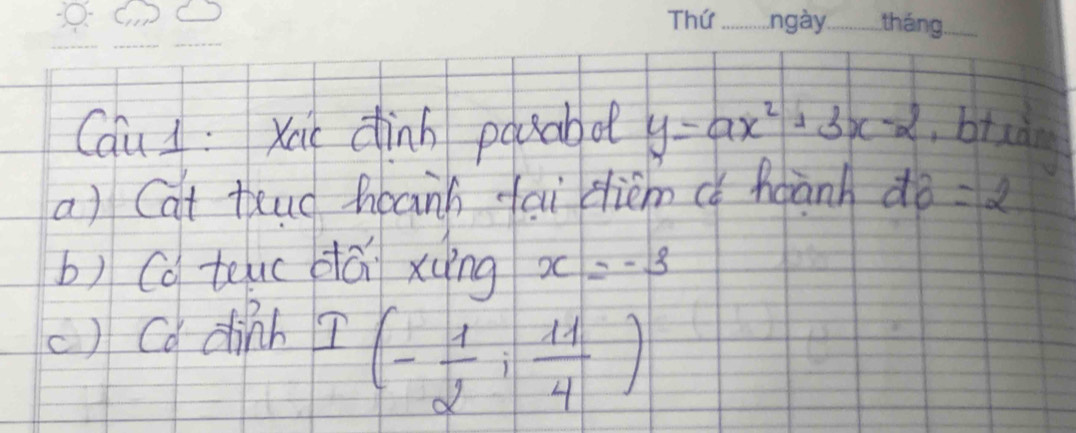 Thứ ........ngày........tháng......
Câu 1: Xác định parabol y = ax² + 3x - 2, bt rằng
a) Cắt trục hoành tại điểm có hoành độ = 2
b) Có trục đối xứng x = -3
c) Có đỉnh I (-1/2; 11/4)